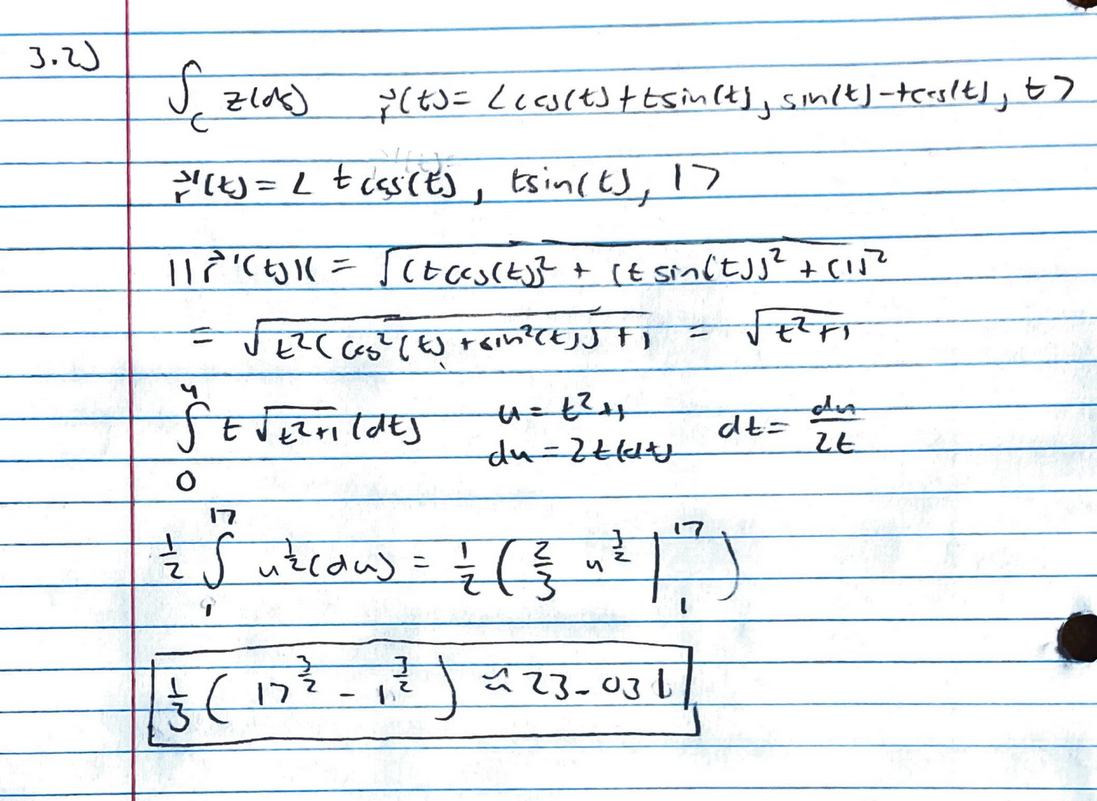 3.2)
∫_C z(ds)   r⃗(t) = <cos(t)+tsin(t), sin(t)-tcos(t), t>
r⃗'(t) = < tcos(t), tsin(t), 1>
||r⃗'(t)|| = √((tcos(t))² + (tsin(t))² + (1)²
= √(t²(cos²(t)+sin²(t))+1) = √(t²+1)
∫₀⁴ t√(t²+1) (dt)   u = t²+1   dt = du/2t
du = 2t(dt)
1/2 ∫₁¹⁷ u^(1/2)(du) = 1/2 (2/3 u^(3/2) |₁¹⁷)
1/3 (17^(3/2) - 1^(3/2)) ≈ 23.031